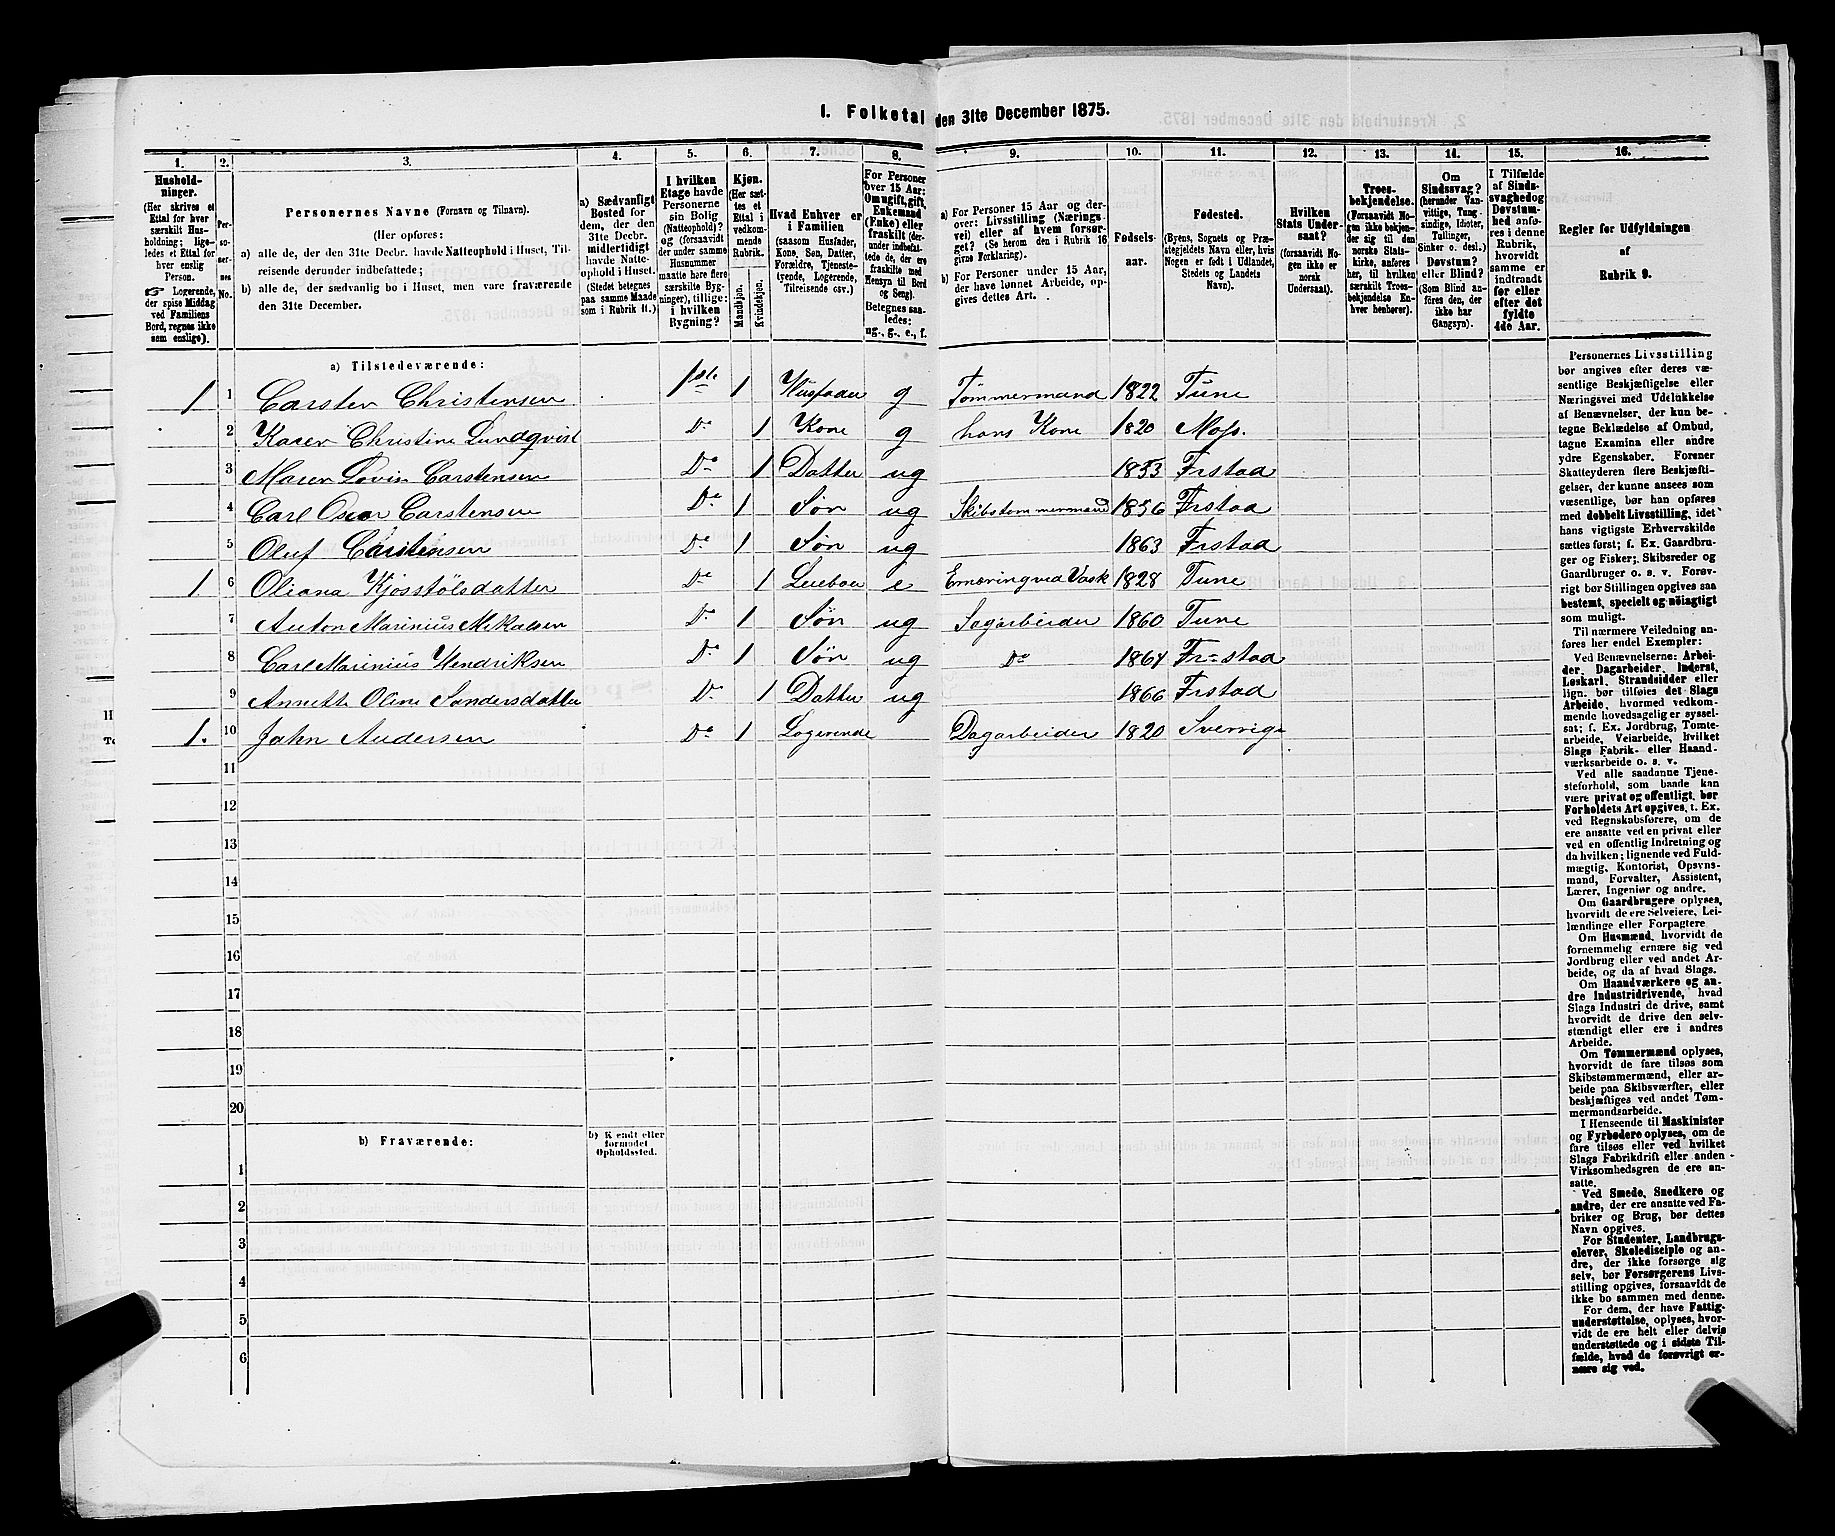 1. Folketal den 31te December 1875.
1. 2. 3. 4. 5. 6. 7. 8. 9. 10. 11. 12. 13. 14. 15. 16.
Hushold-
ninger.
(Her skrives et
Ettal for hver
særskilt Hus-
holdning; lige-
ledes et Ettal for
hver enslig
Person.
☞ Logerende,
der spise Middag
ved Familiens
Bord, regnes ikke
som enslige).
Per-
so-
ner-
nes
No.
Personernes Navne (Fornavn og Tilnavn).
(Her opføres:
a) alle de, der den 31te Decbr. havde Natteophold i Huset, Til-
reisende derunder indbefattede;
b) alle de, der sædvanlig bo i Huset, men vare fraværende
den 31te December.
a) Sædvanligt
Bosted for
dem, der den
31te Decbr.
midlertidigt
havde Natte-
ophold i Huset.
(Stedet betegnes
paa samme Maade
som i Rubrik 11.)
I hvilken
Etage havde
Personerne
sin Bolig
(Natteophold)?
og (forsaavidt
der under samme
Husnummer
maatte høre flere
særskilte Byg-
ninger), tillige:
i hvilken
Bygning?
Kjøn.
(Her sæt-
tes et
Ettal i
vedkom-
mende
Rubrik.
Mandkjøn.
Kvindekjøn.
Hvad Enhver er
i Familien
(saasom Husfader,
Kone, Søn, Datter,
Forældre, Tjeneste-
tyende, Logerende,
Tilreisende csv.)
For Personer
over 15 Aar:
Om ugift, gift,
Enkemand
(Enke) eller
fraskilt (der-
under indbefat-
tede de, der ere
fraskilte med
Hensyn til Bord
og Seng).
Betegnes saa-
ledes:
ug., g., e., f.
a) For Personer 15 Aar og der-
over: Livsstilling (Nærings-
vei) eller af hvem forsør-
get? (Se herom den i Rubrik 16
givne Forklaring).
b) For Personer under 15 Aar,
der have lønnet Arbeide, op-
gives dettes Art.
Fødsels-
aar.
Fødested.
(Byens, Sognets og Præ-
stegjeldets Navn eller, hvis
Nogen er født i Udlandet,
Stedets og Landets
Navn).
Hvilken
Stats Under-
saat?
(forsaavidt No-
gen ikke er
norsk
Undersaat).
Troes-
bekjendelse.
(Forsaavidt No-
gen ikke bekjen-
der sig til den
norske Stats-
kirke, anføres
her, til hvilken
særskilt Troes-
bekjendelse En-
hver henhører).
Om
Sindssvag?
(herunder Van-
vittige, Tung-
sindige, Idioter,
Tullinger,
Sinker o. desl.)
Døvstum?
eller Blind?
(Som Blind an-
føres den, der
ikke har
Gangsyn).
I Tilfælde
af Sinds-
svaghed og
Døvstum-
hed anfø-
res i denne
Rubrik,
hvorvidt
samme er
indtraadt
før eller
efter det
fyldte
4de Aar.
Regler for Udfyldningen
af
Rubrik 9.
a) Tilstedeværende:
1 1 Carsten Christensen 1ste 1 Husfader g Tømmermand 1822 Tune
2 Karen Christine Lundqvist Do 1 Kone g hans Kone 1820 Moss.
3 Maren Lovis Carstensen Do 1 Datter ug 1853 Frstad
4 Carl Oscar Carstensen Do 1 Søn ug Skibstømmermand 1856 Frstad
5 Oluf Carstensen Do 1 Søn ug 1863 Frstad
1 6 Oliana Kjosstølsdatter Do 1 Leieboer e Ernæring ved Vask 1828 Tune
7 Anton Marinius Mikalsen Do 1 Søn ug Sagarbeider 1860 Tune
8 Carl Marinius Hendriksen Do 1 Søn ug Do 1864 Fr=stad
9 Annette Oline Sandersdatter Do 1 Datter ug 1866 Frstad
1. 10 Jahn Andersen Do 1 Logerende Dagarbeider 1820 Sverrige
11
12
13
14
15
16
17
18
19
20
b) Fraværende:
b) Kjendt eller
formodet
Opholdssted.
1
2
3
4
5
6
Personernes Livsstilling
bør angives efter deres væ-
sentlige Beskjæftigelse eller
Næringsvei med Udelukkelse
af Benævnelser, der kun be-
tegne Beklædelse af Ombud,
tagne Examina eller andre
ydre Egenskaber. Forener
Skatteyderen flere Beskjæfti-
gelser, der kunne ansees som
væsentlige, bør han opføres
med dobbelt Livsstilling, idet
hans vigtigste Erhvervskilde
sættes først; f. Ex. Gaardbru-
ger og Fisker; Skibsreder og
Gaardbruger o. s. v. Forøv-
rigt bør Stillingen opgives saa
bestemt, specielt og nøiagtigt
som muligt.
Til nærmere Veiledning an-
føres her endel Exempler:
Ved Benævnelserne: Arbei-
der, Dagarbeider, Inderst,
Løskarl, Strandsidder eller
lign. bør tilføies det Slags
Arbeide, hvormed vedkom-
mende hovedsagelig er syssel-
sat; f. Ex. Jordbrug, Tomte-
arbeide, Veiarbeide, hvilket
Slags Fabrik- eller Haand-
værksarbeide o. s. v.
Ved alle saadanne Tjene-
steforhold, som baade kan
være privat og offentligt, bør
Forholdets Art opgives, t. Ex.
ved Regnskabsførere, om de
ere ansatte ved en privat eller
ved en offentlig Indretning og
da hvilken; lignende ved Fuld-
mægtig, Kontorist, Opsyns-
mand, Forvalter, Assistent,
Lærer, Ingeniør og andre.
Om Gaardbrugere oplyses,
hvorvidt de ere Selveiere, Lei-
lændinge eller Forpagtere
Om Husmænd, hvorvidt de
fornemmelig ernære sig ved
Jordbrug eller ved andet Ar-
beide, og da af hvad Slags.
Om Haandværkere og an-
dre Industridrivende, hvad
Slags Industri de drive, samt
hvorvidt de drive den selv-
stændigt eller ere i andres
Arbeide.
Om Tømmermænd oplyses,
hvorvidt de fare tilsøs som
Skibstømmermænd, eller ar-
beide paa Skibsværfter, eller
beskjæftiges ved andet Tøm-
mermandsarbeide.
I Henseende til Maskinister
og Fyrbødere oplyses, om de
fare tilsøs eller ved hvilket
Slags Fabrikdrift eller anden
Virksomhedsgren de ere an-
satte.
Ved Smede, Snedkere og
andre, der ere ansatte ved Fa-
briker og Brug, bør dettes
Navn opgives.
For Studenter, Landbrugs-
elever, Skoledisciple og an-
dre, der ikke forsørge sig
selv, bør Forsørgerens Livs-
stilling opgives, forsaavidt de
ikke bo sammen med denne.
For dem, der have Fattig-
understøttelse, oplyses, hvor-
vidt de ere helt eller delvis
understøttede og i sidste Til-
fælde, hvad de forøvrigt er-
nære sig ved.